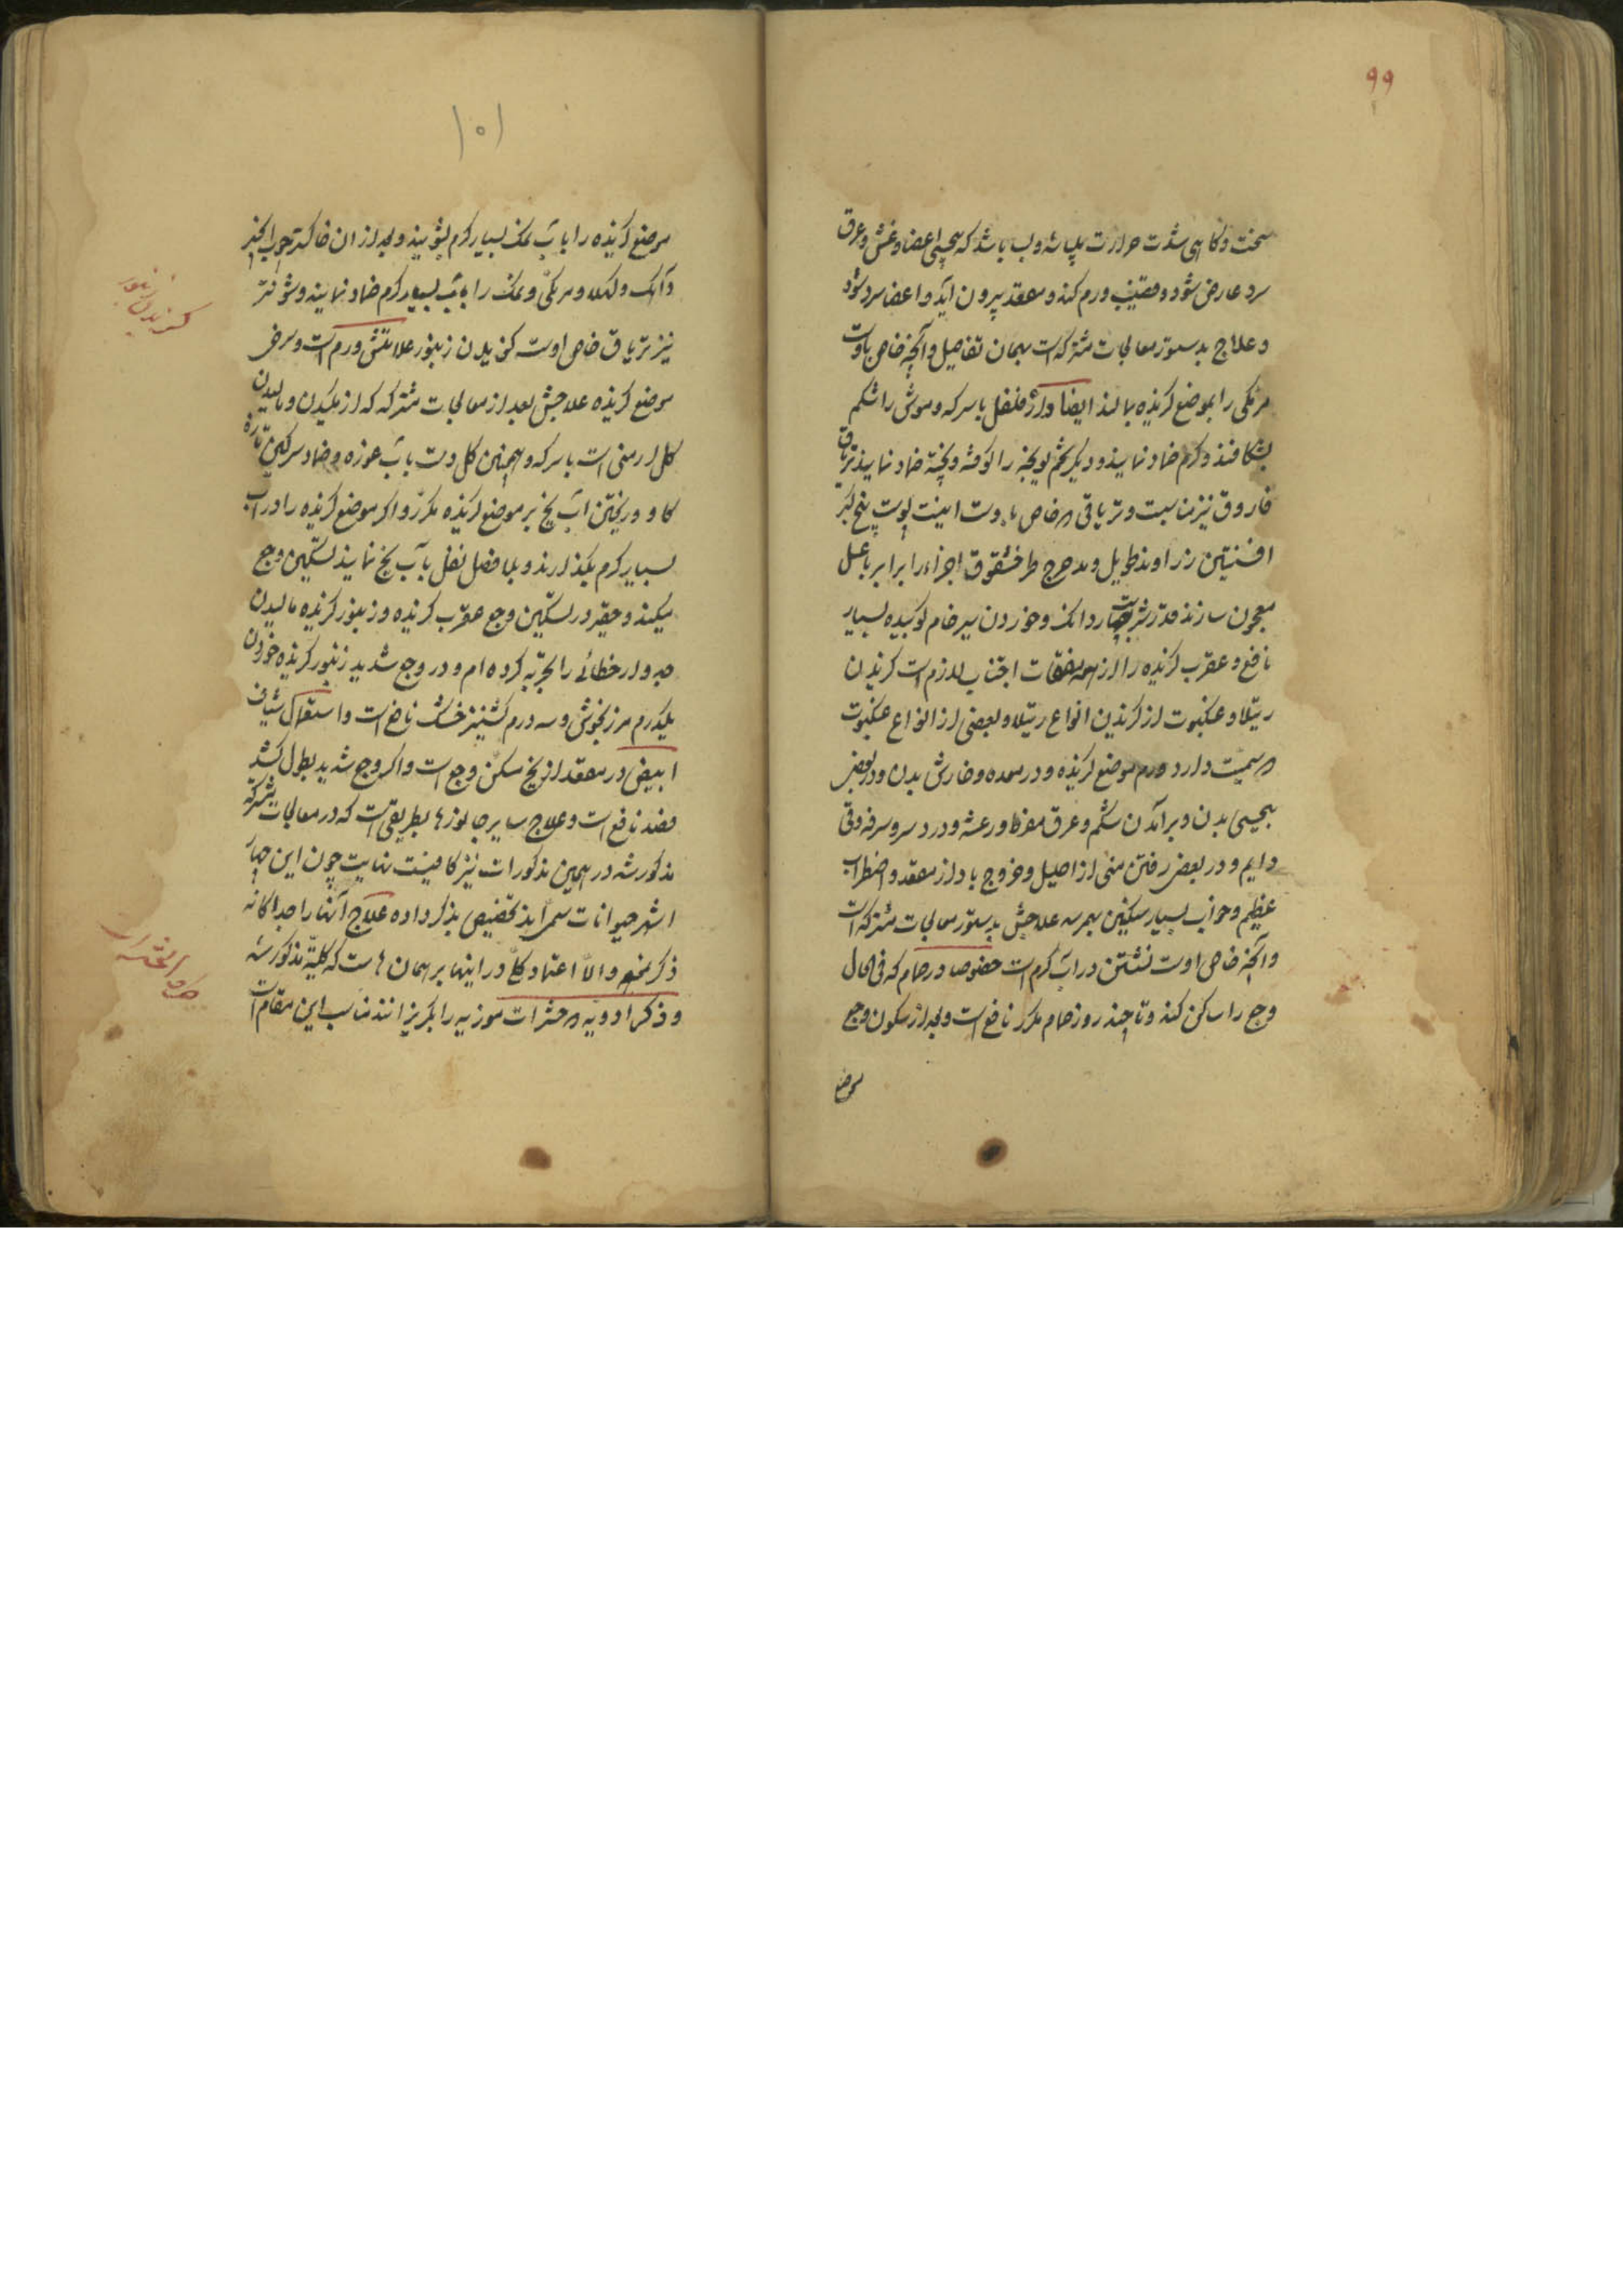 ۹۹
سخت و کاهی شدت حرارت پلپا شد و لب باشد که بهجپی اعضا و غشی و عرق
سرد عارض شود و قضیب ورم کند و مقعد بیرون آید و اعضا سرد شود
و علاج بدستور معالجات مشترکه است بهمان تفاصیل و آنچه خاص باوست
مرمکی را بموضع گزیده بمالند ایضا و فلفل با سرکه و موش را شکم
بشکافند و گرم ضماد نمایند و دیگر تخم را کوفته و پخته ضماد نمایند تریاق
فاروق نیز مناسبت و تریاقی که خاص باوست اینست پوست بیخ کبر
افسنتین زراوند طویل و مدحرج طرخشقوق اجزاء برابر با عسل
معجون سازند قدر شربت چهار دانک و خوردن سیر خام کوبیده بسیار
نافع و عقرب گزیده را از اجتناب لازم است گزیدن
رتیلا و عنکبوت از گزیدن انواع رتیلا و بعضی از انواع عنکبوت
که سمیت دارد ورم موضع گزیده و درد معده و خارش بدن و در بعض
بدن و برآمدن شکم و عرق مفرط و رعشه و درد سر و سرفه و قی
دایم و در بعض رفتن منی از احلیل و خروج باد از مقعد و اضطراب
عظیم و خواب بسیار سنگین بهم رسد علاجش بدستور معالجات مشترکه است
و آنچه خاص اوست نشستن در آب گرم است خصوصا در حمام که فی الحال
وجع را ساکن کند و تا چند روز حمام مکرر نافع است و بعد از سکون وجع
موضع
۱۰۱
موضع گزیده را با آب نمک بسیار گرم بشویند و بعد از ان خاکستر چوب انجیر
و آهک و مرمکی و نمک را با آب بسیار گرم ضماد نمایند و شونیز
نیز تریاق خاص اوست گزیدن زنبور علامتش ورم است و سرخی
موضع گزیده علاجش بعد از معالجات مشترکه که از مکیدن و مالیدن
گل ارمنی است با سرکه و همچنین گل و ضماد سرگین تازه
گاو و ریختن آب یخ بر موضع گزیده مکرر و اگر موضع گزیده را در آب
بسیار گرم بگذارند و بلا فصل نقل با آب یخ نمایند تسکین وجع
میکند و حقیر در تسکین وجع عقرب گزیده و زنبور گزیده مالیدن
جدوار خطائی را تجربه کرده ام و در وجع شدید زنبور گزیده خوردن
یکدرم مرزنجوش و سه درم کشنیز خشک نافع است و استعمال شیاف
ابیض در مقعد از یخ مسکن وجع است و اگر وجع شدید بطول کشد
فصد نافع است و علاج سایر جانورها بطریقی است که در معالجات مشترکه
مذکور شد در همین مذکورات نیز نهایت چون این چهار
اشهر حیوانات سمی اند تخصیص بذکر داده علاج آنها را جداگانه
ذکر نمود و الا اعتماد کل در اینها بر همان هاست که کلیة مذکور شد
و ذکر ادویه که حشرات موذیه را بگریزانند مناسب این مقام است
گزیدن زنبور